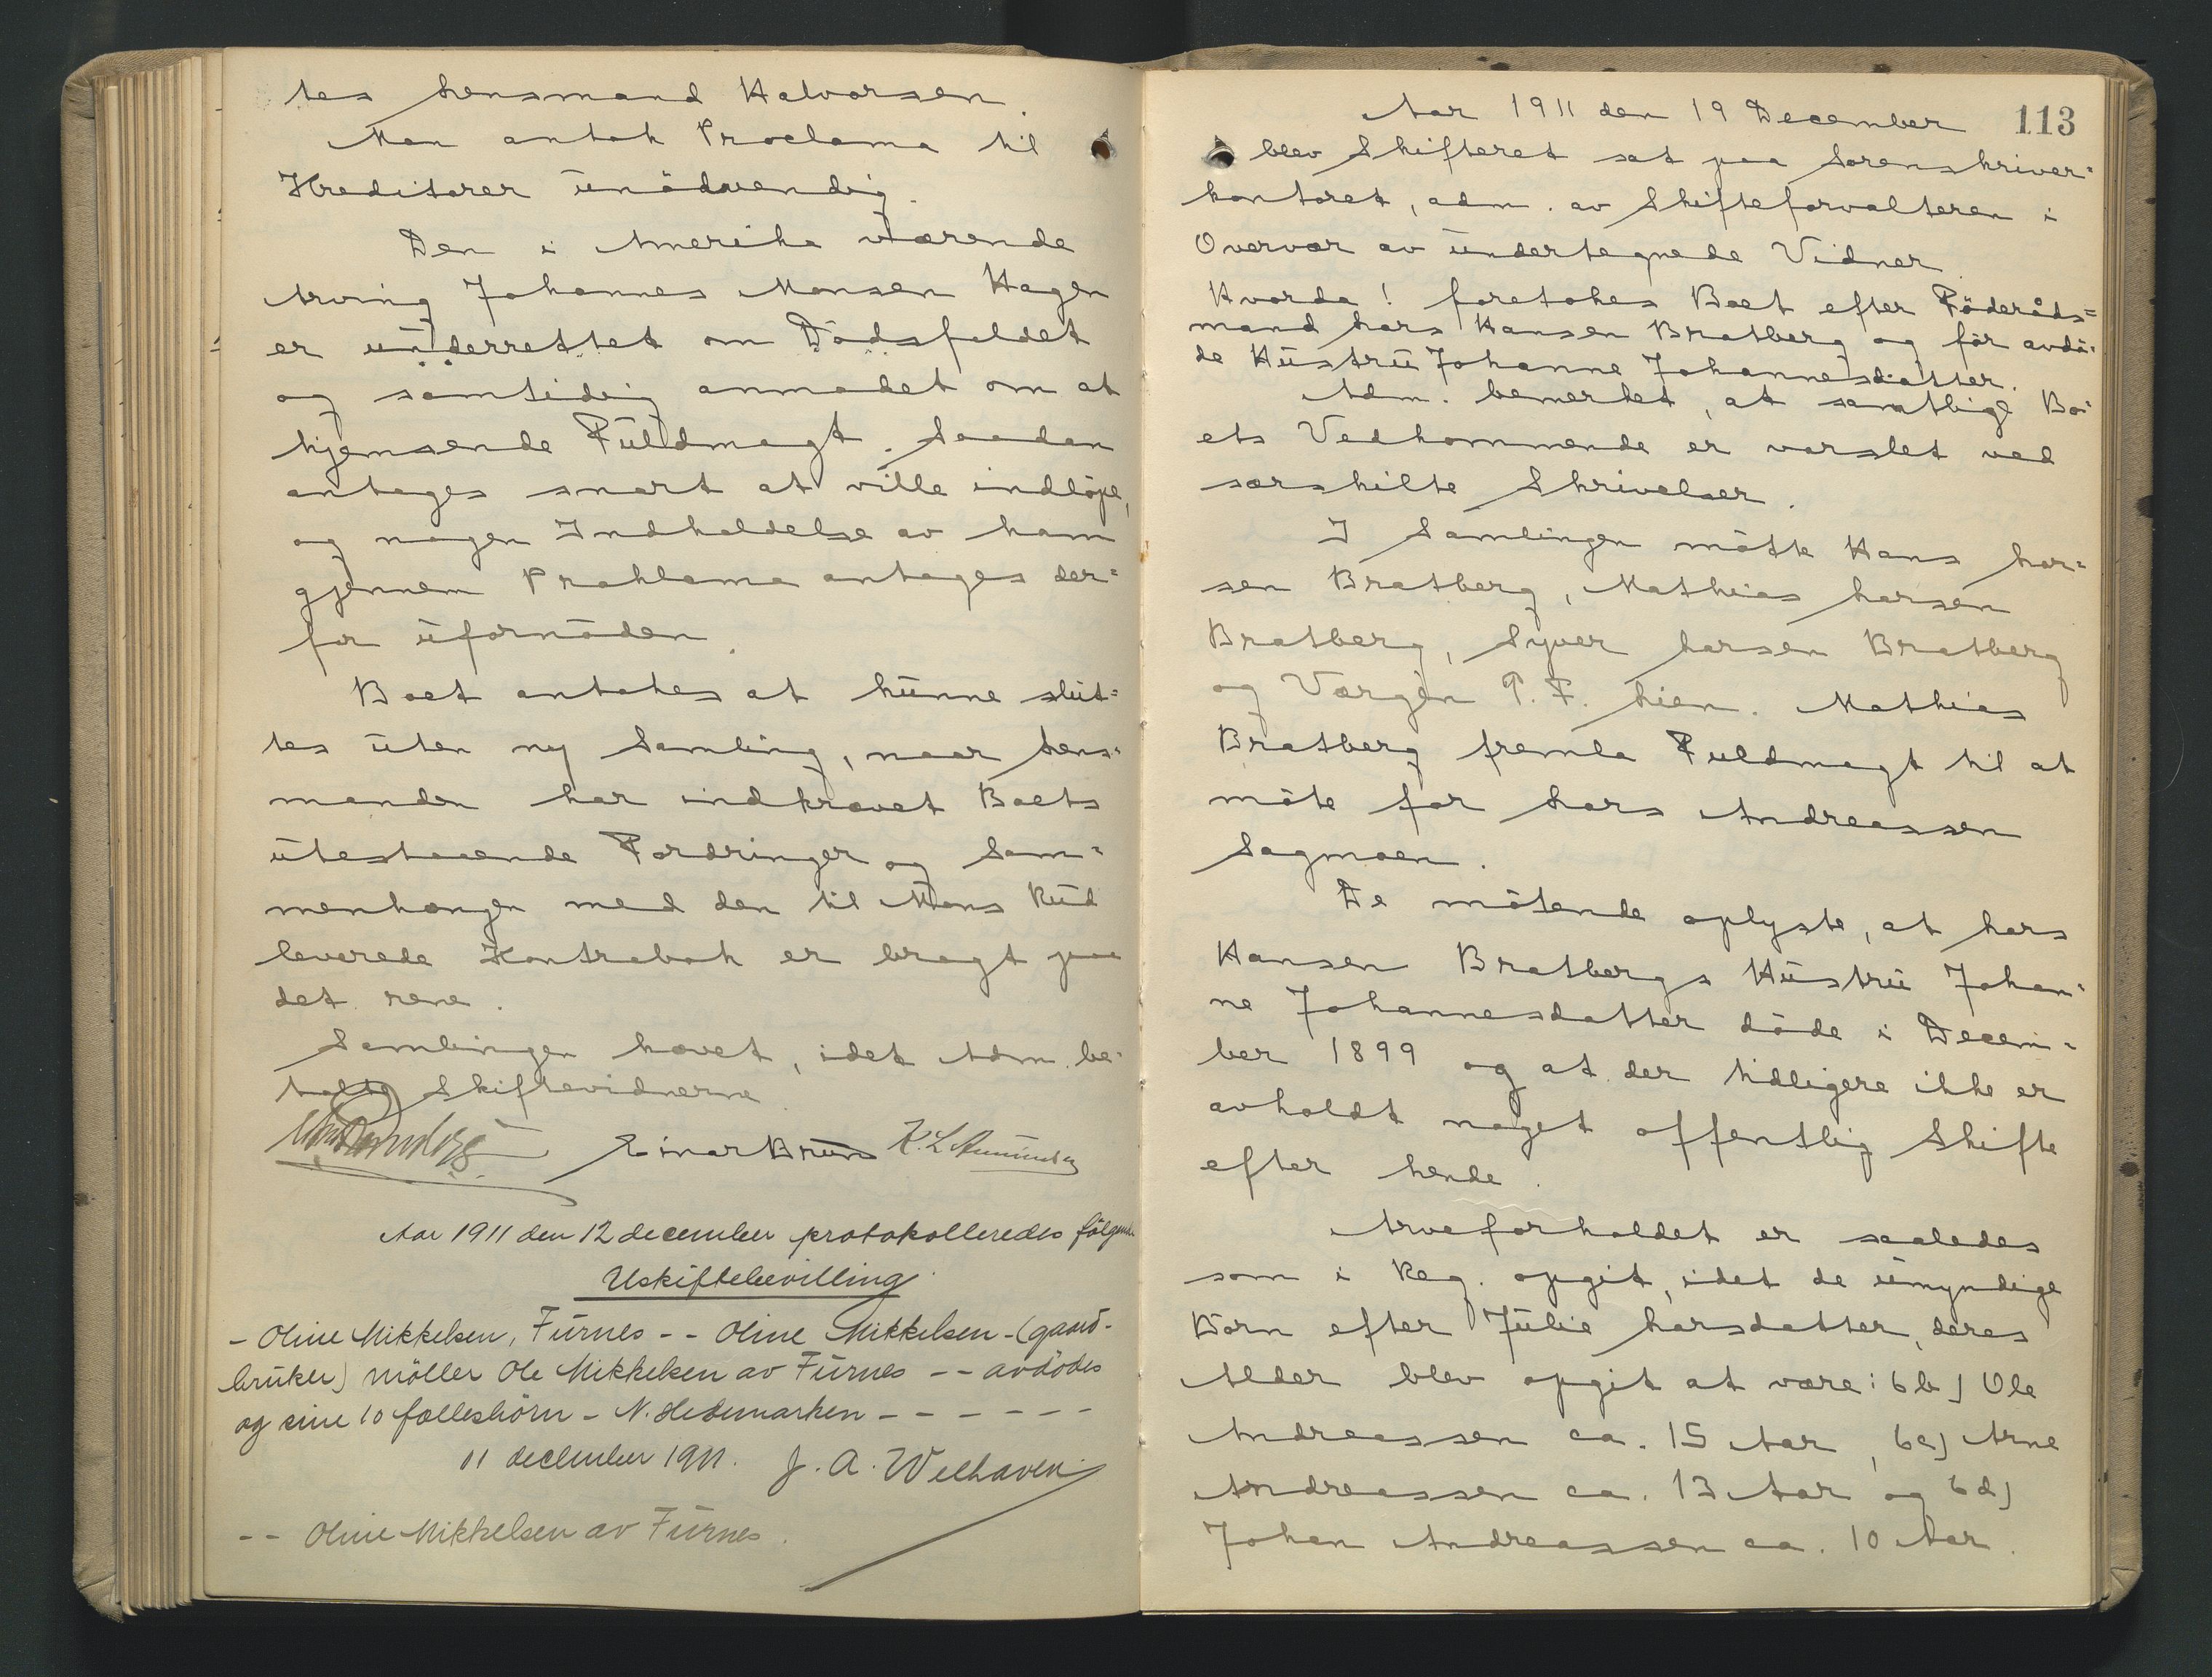 tes Lensmand Halvorsen.
Man antok Proclama til
Kreditorer unödvendig.
Den i Amerika værende
Arving Johannes Monsen Hagen
er underrettet om Dödsfaldet
og samtidig anmodet om at
hjemsende Fuldmagt. Saadan
antages snart at ville indlöpe,
og nogen Indkaldelse av ham
gjennem Proklama antages der=
for ufornöden.
Boet antokes at kunne slut=
tes uten ny Samling, naar Lens=
manden har indkrævet Boets
utestaaende Fordringer og Sam=
menhængen med den til Mons Rud
leverede Kontrabok er bragt paa
det rene.
Samlingen hævet, idet Adm. be=
talte Skiftevidnerne.
Einar Bruns K. L. Amundsen
Aar 1911 den 12 december protokolleredes fölgende
Uskiftebevilling
- Oline Mikkelsen, Furnes - - Oline Mikkelsen - (gaard-
bruker) möller Ole Mikkelsen av Furnes - - avdödes
og sine 10 fællesbörn - N. Hedemarken - - - - - -
11 december 1911. J. A. Welhaven
- - Oline Mikkelsen av Furnes.
113
Aar 1911 den 19 December
blev Skifteret sat paa Sorenskriver=
kontoret, adm. av Skifteforvalteren i
Overvær av undertegnede Vidner.
Hvorda! foretokes Boet efter Föderåds=
mand Lars Hansen Bratberg og för avdö=
de Hustru Johanne Johannesdatter.
Adm. bemerket, at samtlige Bo=
ets Vedkommende er varslet ved
særskilte Skrivelser.
I Samlingen mötte Hans Lar=
sen Bratberg, Mathias Larsen
Bratberg, Syver Larsen Bratberg
og Værgen P. F. Lien. Mathias
Bratberg fremla Fuldmagt til at
möte for Lars Andreassen
Sagmoen.
De mötende oplyste, at Lars
Hansen Bratbergs Hustru Johan=
ne Johannesdatter döde i Decem=
ber 1899 og at der tidligere ikke er
avholdt noget offentlig Skifte
efter hende.
Arveforholdet er saaledes
som i Reg. opgit, idet de umyndige
Börn efter Julie Larsdatter, deres
Alder blev opgit at være: 6b) Ole
Andreassen ca. 15 Aar, 6c) Arne
Andreassen ca. 13 Aar og 6d)
Johan Andreassen ca. 10 Aar.